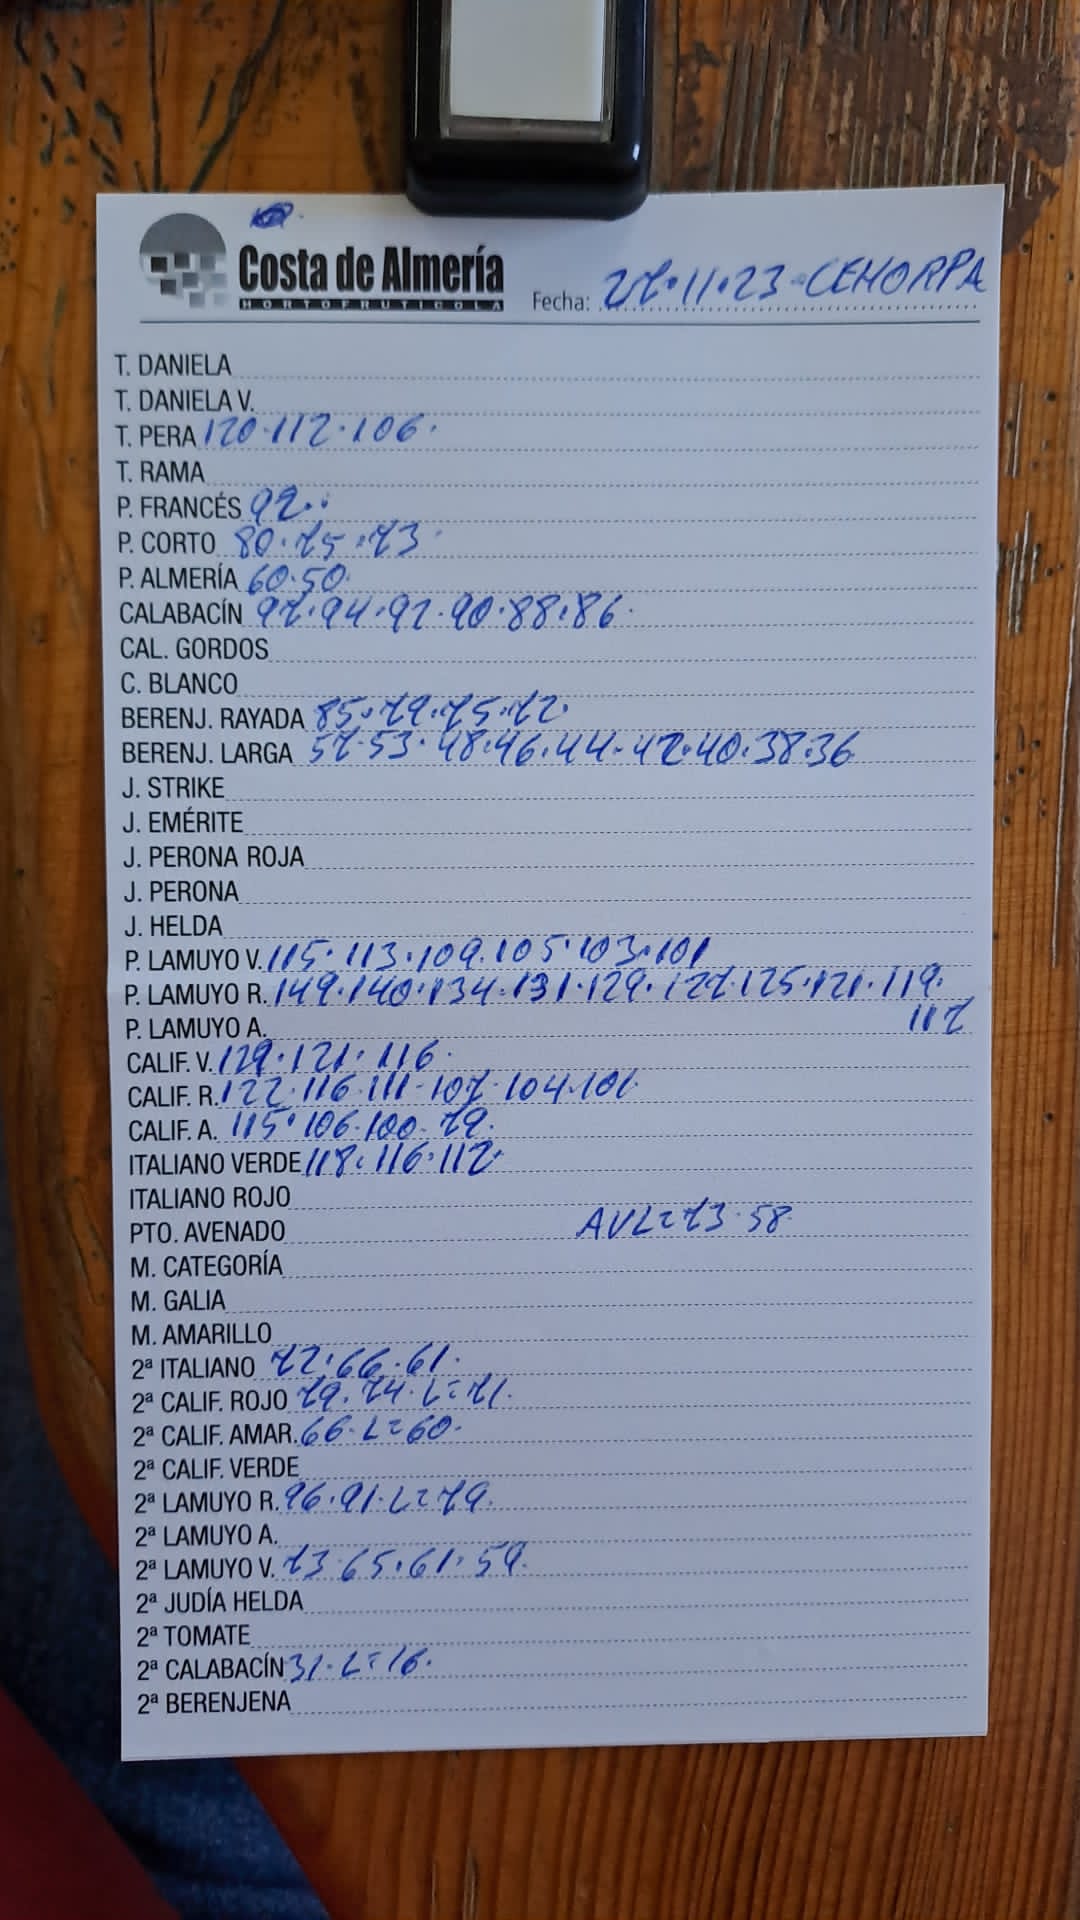 Costa de Almería
HORTOFRUTICOLA
Fecha: 27·11·23-CEHORPA
T. DANIELA
T. DANIELA V.
T. PERA 120·112·106·
T. RAMA
P. FRANCÉS 92··
P. CORTO 80·75·73
P. ALMERÍA 60·50·
CALABACÍN 97·94·92·90·88·86·
CAL. GORDOS
C. BLANCO
BERENJ. RAYADA 85·79·75·72·
BERENJ. LARGA 57·53·48·46·44·42·40·38·36
J. STRIKE
J. EMÉRITE
J. PERONA ROJA
J. PERONA
J. HELDA
P. LAMUYO V. 115·113·109·105·103·101
P. LAMUYO R. 149·140·134·131·129·127·125·121·119·
P. LAMUYO A. 117
CALIF. V. 129·121·116·
CALIF. R. 122·116·111·107·104·101
CALIF. A. 115·106·100·79·
ITALIANO VERDE 118·116·112·
ITALIANO ROJO
PTO. AVENADO AVL=73·58·
M. CATEGORÍA
M. GALIA
M. AMARILLO
2ª ITALIANO 72·66·61·
2ª CALIF. ROJO 79·74·L=71·
2ª CALIF. AMAR. 66·L=60·
2ª CALIF. VERDE
2ª LAMUYO R. 96·91·L=79·
2ª LAMUYO A.
2ª LAMUYO V. 73·65·61·59·
2ª JUDÍA HELDA
2ª TOMATE
2ª CALABACÍN 31·L=16·
2ª BERENJENA